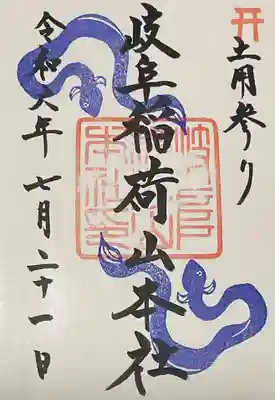 土用参り
岐阜稲荷山本社
令和六年七月二十一日